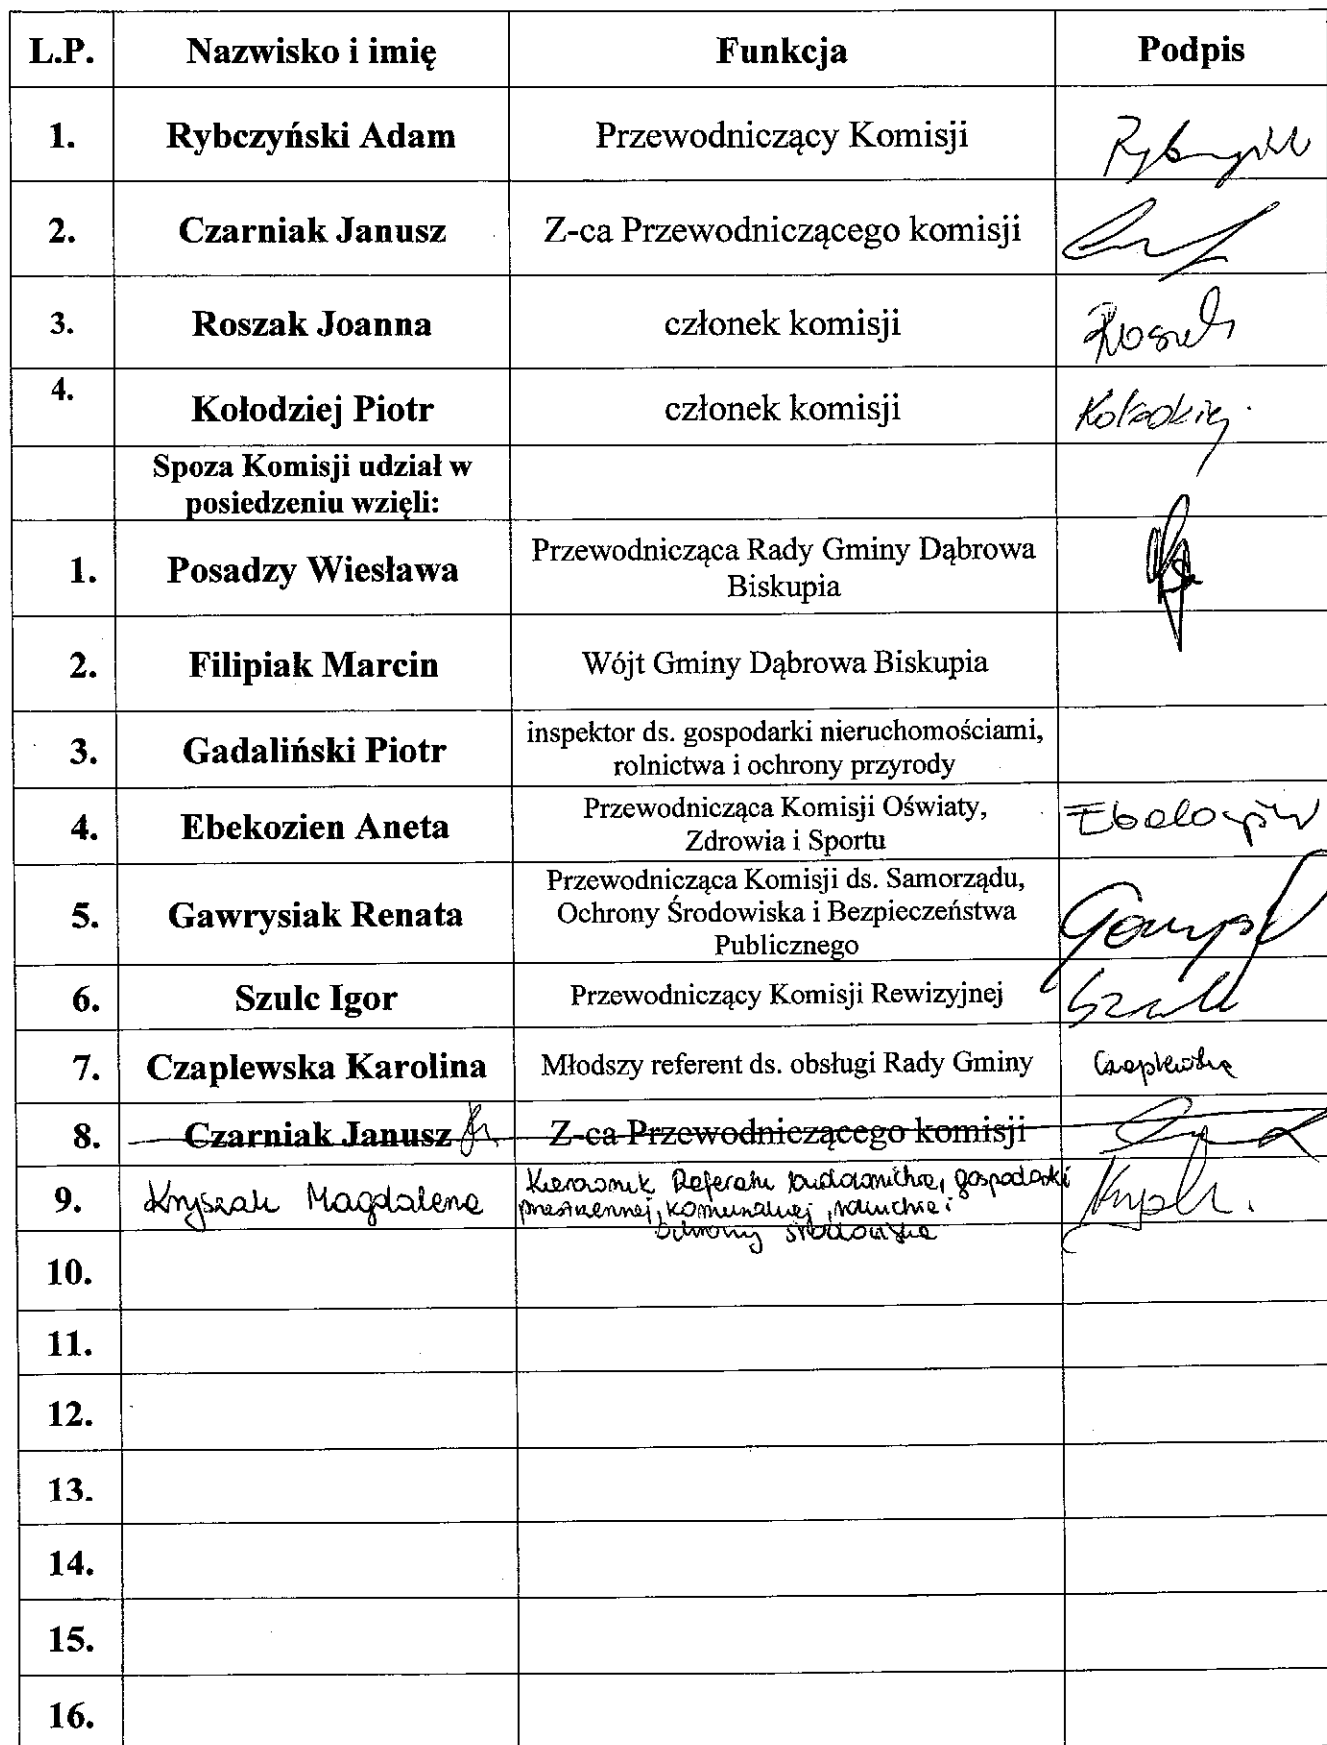 L.P. Nazwisko i imię Funkcja Podpis
1. Rybczyński Adam Przewodniczący Komisji
2. Czarniak Janusz Z-ca Przewodniczącego komisji
3. Roszak Joanna członek komisji
4. Kołodziej Piotr członek komisji Kołodziej
Spoza Komisji udział w
posiedzeniu wzięli:
1. Posadzy Wiesława Przewodnicząca Rady Gminy Dąbrowa
Biskupia
2. Filipiak Marcin Wójt Gminy Dąbrowa Biskupia
3. Gadaliński Piotr inspektor ds. gospodarki nieruchomościami,
rolnictwa i ochrony przyrody
4. Ebekozien Aneta Przewodnicząca Komisji Oświaty,
Zdrowia i Sportu
5. Gawrysiak Renata Przewodnicząca Komisji ds. Samorządu,
Ochrony Środowiska i Bezpieczeństwa
Publicznego
6. Szulc Igor Przewodniczący Komisji Rewizyjnej
7. Czaplewska Karolina Młodszy referent ds. obsługi Rady Gminy Czaplewska
8. Czarniak Janusz Z-ca Przewodniczącego komisji
9. Kryszak Magdalena Kierownik Referatu budownictwa, gospodarki
przestrzennej, komunalnej, rolnictwa i
ochrony środowiska
10.
11.
12.
13.
14.
15.
16.